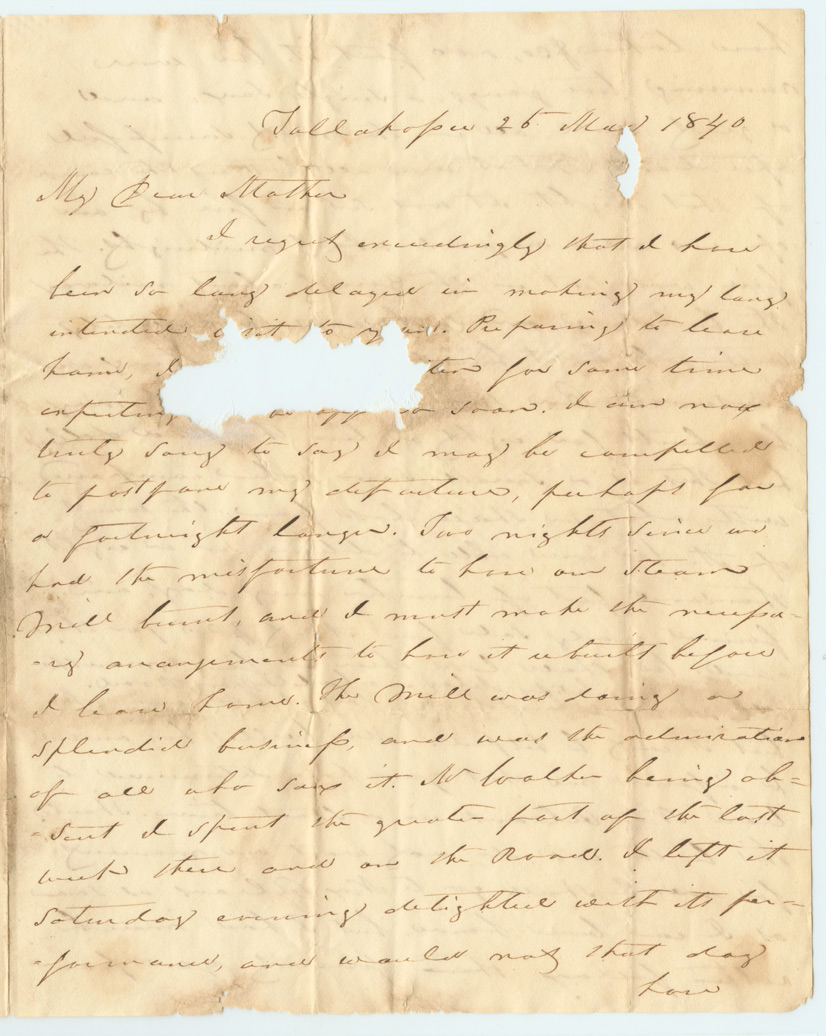 Tallahossee 25 May 1840
My Dear Mother
I regret exceedingly that I have
been so long delayed in making my long
intended visit to you. Preparing to leave
home, I for some time
expecting so soon. I am now
truly sorry to say I may be compelled
to postpone my departure, perhaps for
a fortnight longer. Two nights since we
had the misfortune to have our Steam
Mill burnt, and I must make the necessa-
-ry arangements to have it rebuilt before
I leave home. The Mill was doing a
splendid business, and was the admiration
of all who saw it. Mr Walker being ab=
=sent I spent the greater part of the last
week there and on the Road. I left it
Saturday evening delighted with its per=
=formance, and would not that day
have